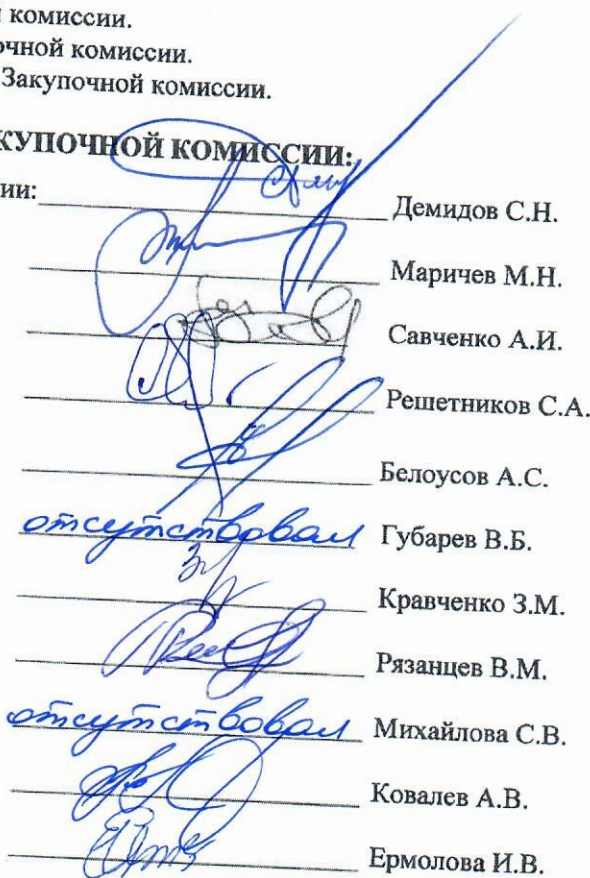 комиссии.
очной комиссии.
Закупочной комиссии.
КУПОЧНОЙ КОМИССИИ:
ии: Демидов С.Н.
Маричев М.Н.
Савченко А.И.
Решетников С.А.
Белоусов А.С.
отсутствовал Губарев В.Б.
Кравченко З.М.
Рязанцев В.М.
отсутствовал Михайлова С.В.
Ковалев А.В.
Ермолова И.В.